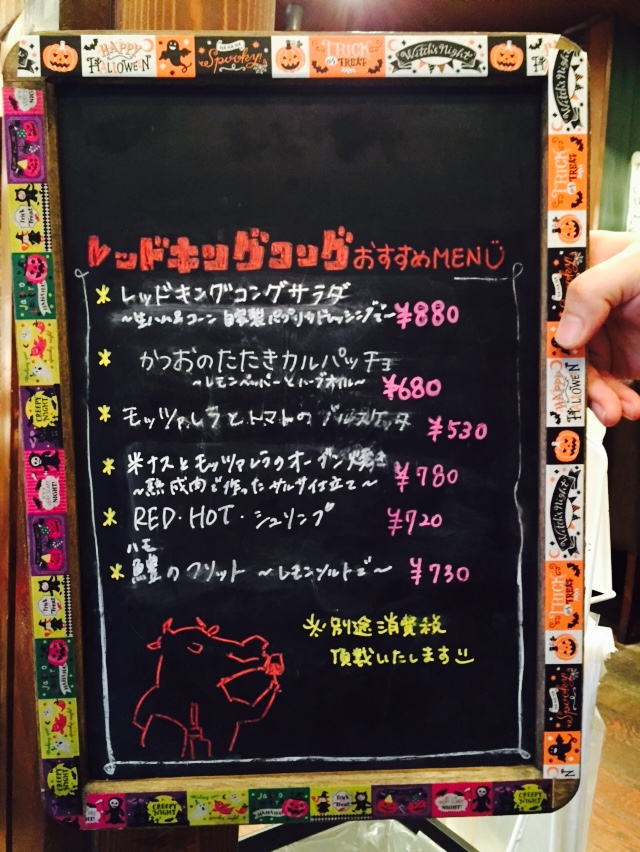 HAPPY HALLOWEEN
Spooky!
TRICK or TREAT
Witch's Night
レッドキングコングおすすめMENU
* レッドキングコングサラダ
~生ハム&コーン 自家製パプリカドレッシングで~ ¥880
* かつおのたたきカルパッチョ
~レモンペッパーとハーブオイル~ ¥680
* モッツァレラとトマトのブルスケッタ ¥530
* 米ナスとモッツァレラのオーブン焼き
~熟成肉で作ったサルサ仕立て~ ¥780
* RED・HOT・シュリンプ ¥720
ハモ
* 鱧のフリット ~レモンソルトで~ ¥730
※別途消費税
頂戴いたします